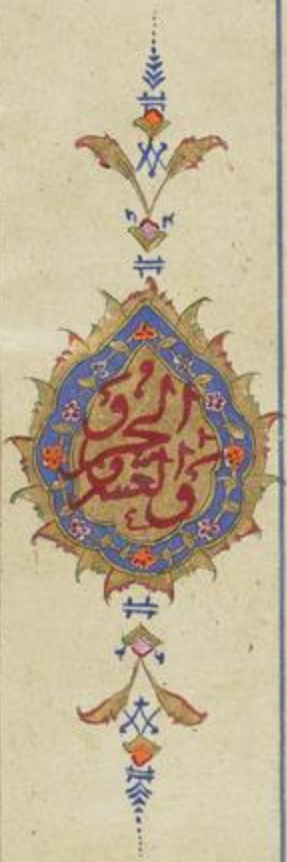 الجزو
العشرون